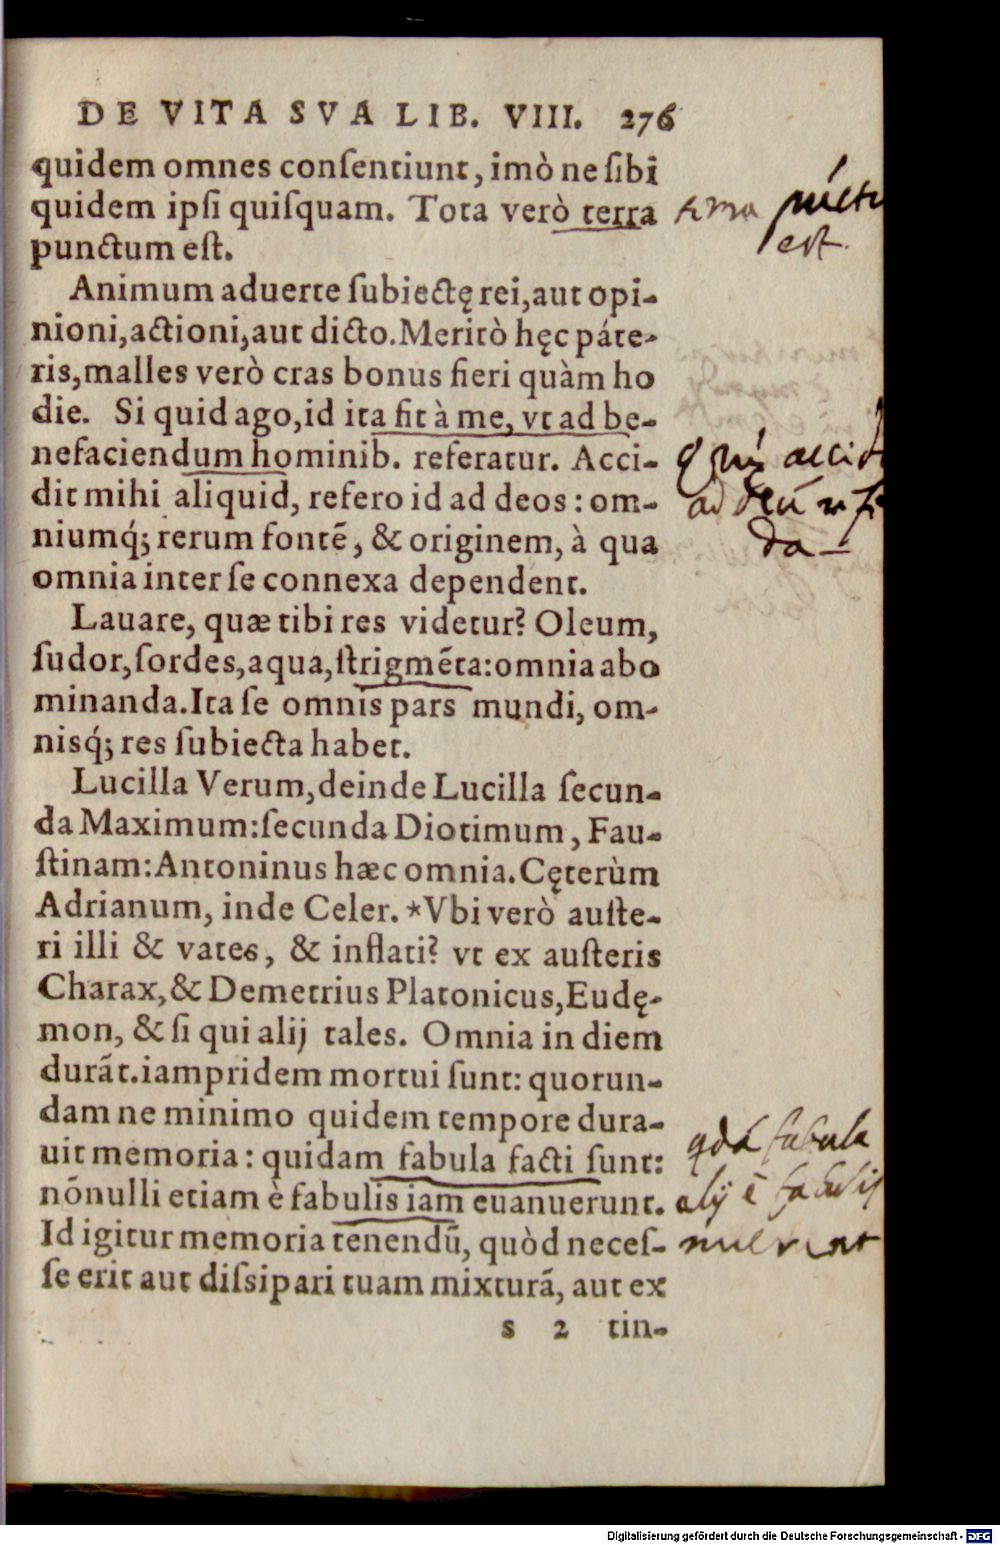 DE VITA SVA LIB. VIII. 276
quidem omnes conſentiunt, imò ne ſibi
quidem ipſi quiſquam. Tota verò terra
punctum eſt.
est
Animum aduerte ſubiectę rei, aut opi-
nioni, actioni, aut dicto. Meritò hęc páte-
ris, malles verò cras bonus fieri quàm ho
die. Si quid ago, id ita fit à me, vt ad be-
nefaciendum hominib. referatur. Acci-
dit mihi aliquid, refero id ad deos: om-
niumq́; rerum fontē, & originem, à qua
omnia inter ſe connexa dependent.
ad deū
Lauare, quæ tibi res videtur? Oleum,
ſudor, ſordes, aqua, ſtrigmēta: omnia abo
minanda. Ita ſe omnis pars mundi, om-
nisq́; res ſubiecta habet.
Lucilla Verum, deinde Lucilla ſecun-
da Maximum: ſecunda Diotimum, Fau-
ſtinam: Antoninus hæc omnia. Cęterùm
Adrianum, inde Celer. *Vbi verò auſte-
ri illi & vates, & inflati? vt ex auſteris
Charax, & Demetrius Platonicus, Eudę-
mon, & ſi qui alij tales. Omnia in diem
durãt. iampridem mortui ſunt: quorun-
dam ne minimo quidem tempore dura-
uit memoria: quidam fabula facti ſunt:
nõnulli etiam è fabulis iam euanuerunt.
Id igitur memoria tenendũ, quòd neceſ-
ſe erit aut diſsipari tuam mixturã, aut ex
fabula
alij è fabulis
s 2 tin-
Digitalisierung gefördert durch die Deutsche Forschungsgemeinschaft - DFG